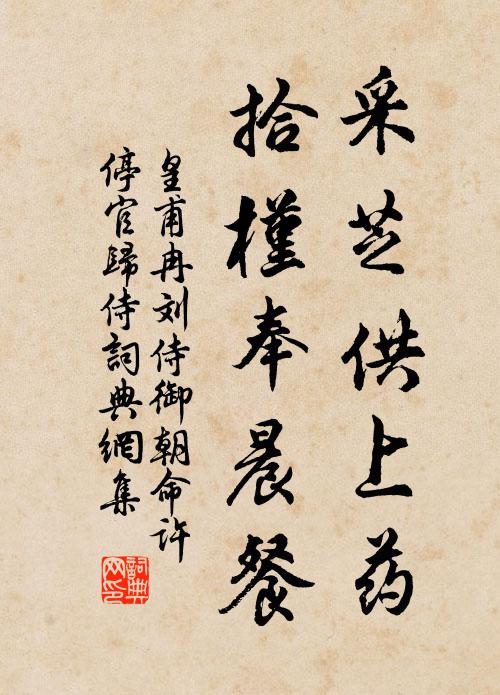 采芝供上药
拾槿奉晨餐
皇甫冉刘侍御朝命许
停官歸侍詞典網集
詞典
网印